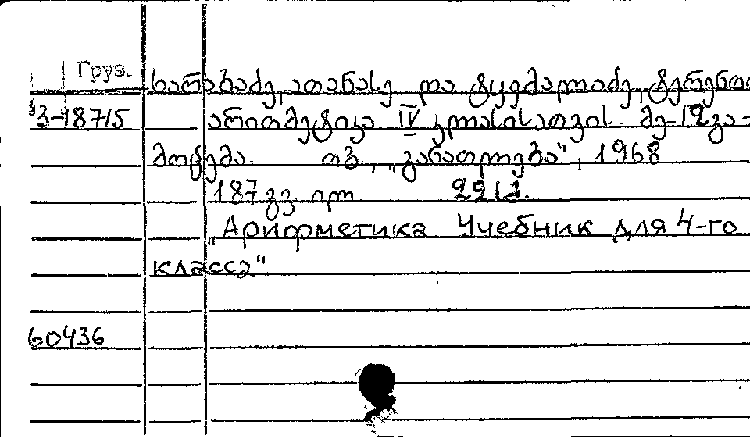 Груз.
ხარაბაძე, ათანასე და ტყემალაძე,
3-18715 არითმეტიკა IV კლასისათვის. მე-12 გა-
მოცემა. თბ., „განათლება", 1968
187 გვ.
„Арифметика Учебник для 4-го
класса"
60436